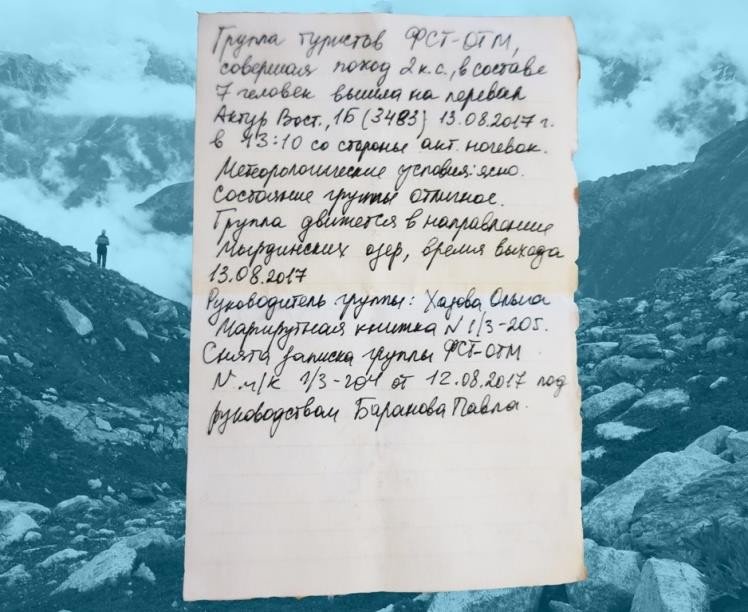 Группа туристов ФСТ-ОТМ,
совершая поход 2 к.с., в составе
7 человек вышла на перевал
Актур Вост., 1Б (3483) 13.08.2017 г.
в 13:10 со стороны акт. ночевок.
Метеорологические условия: ясно.
Состояние группы отличное.
Группа движется в направлении
озер, время выхода
13.08.2017
Руководитель группы: Ольга
Маршрутная книжка N 1/3-205.
Снята записка группы ФСТ-ОТМ
N м/к 1/3-204 от 12.08.2017 под
руководством Баранова Павла.